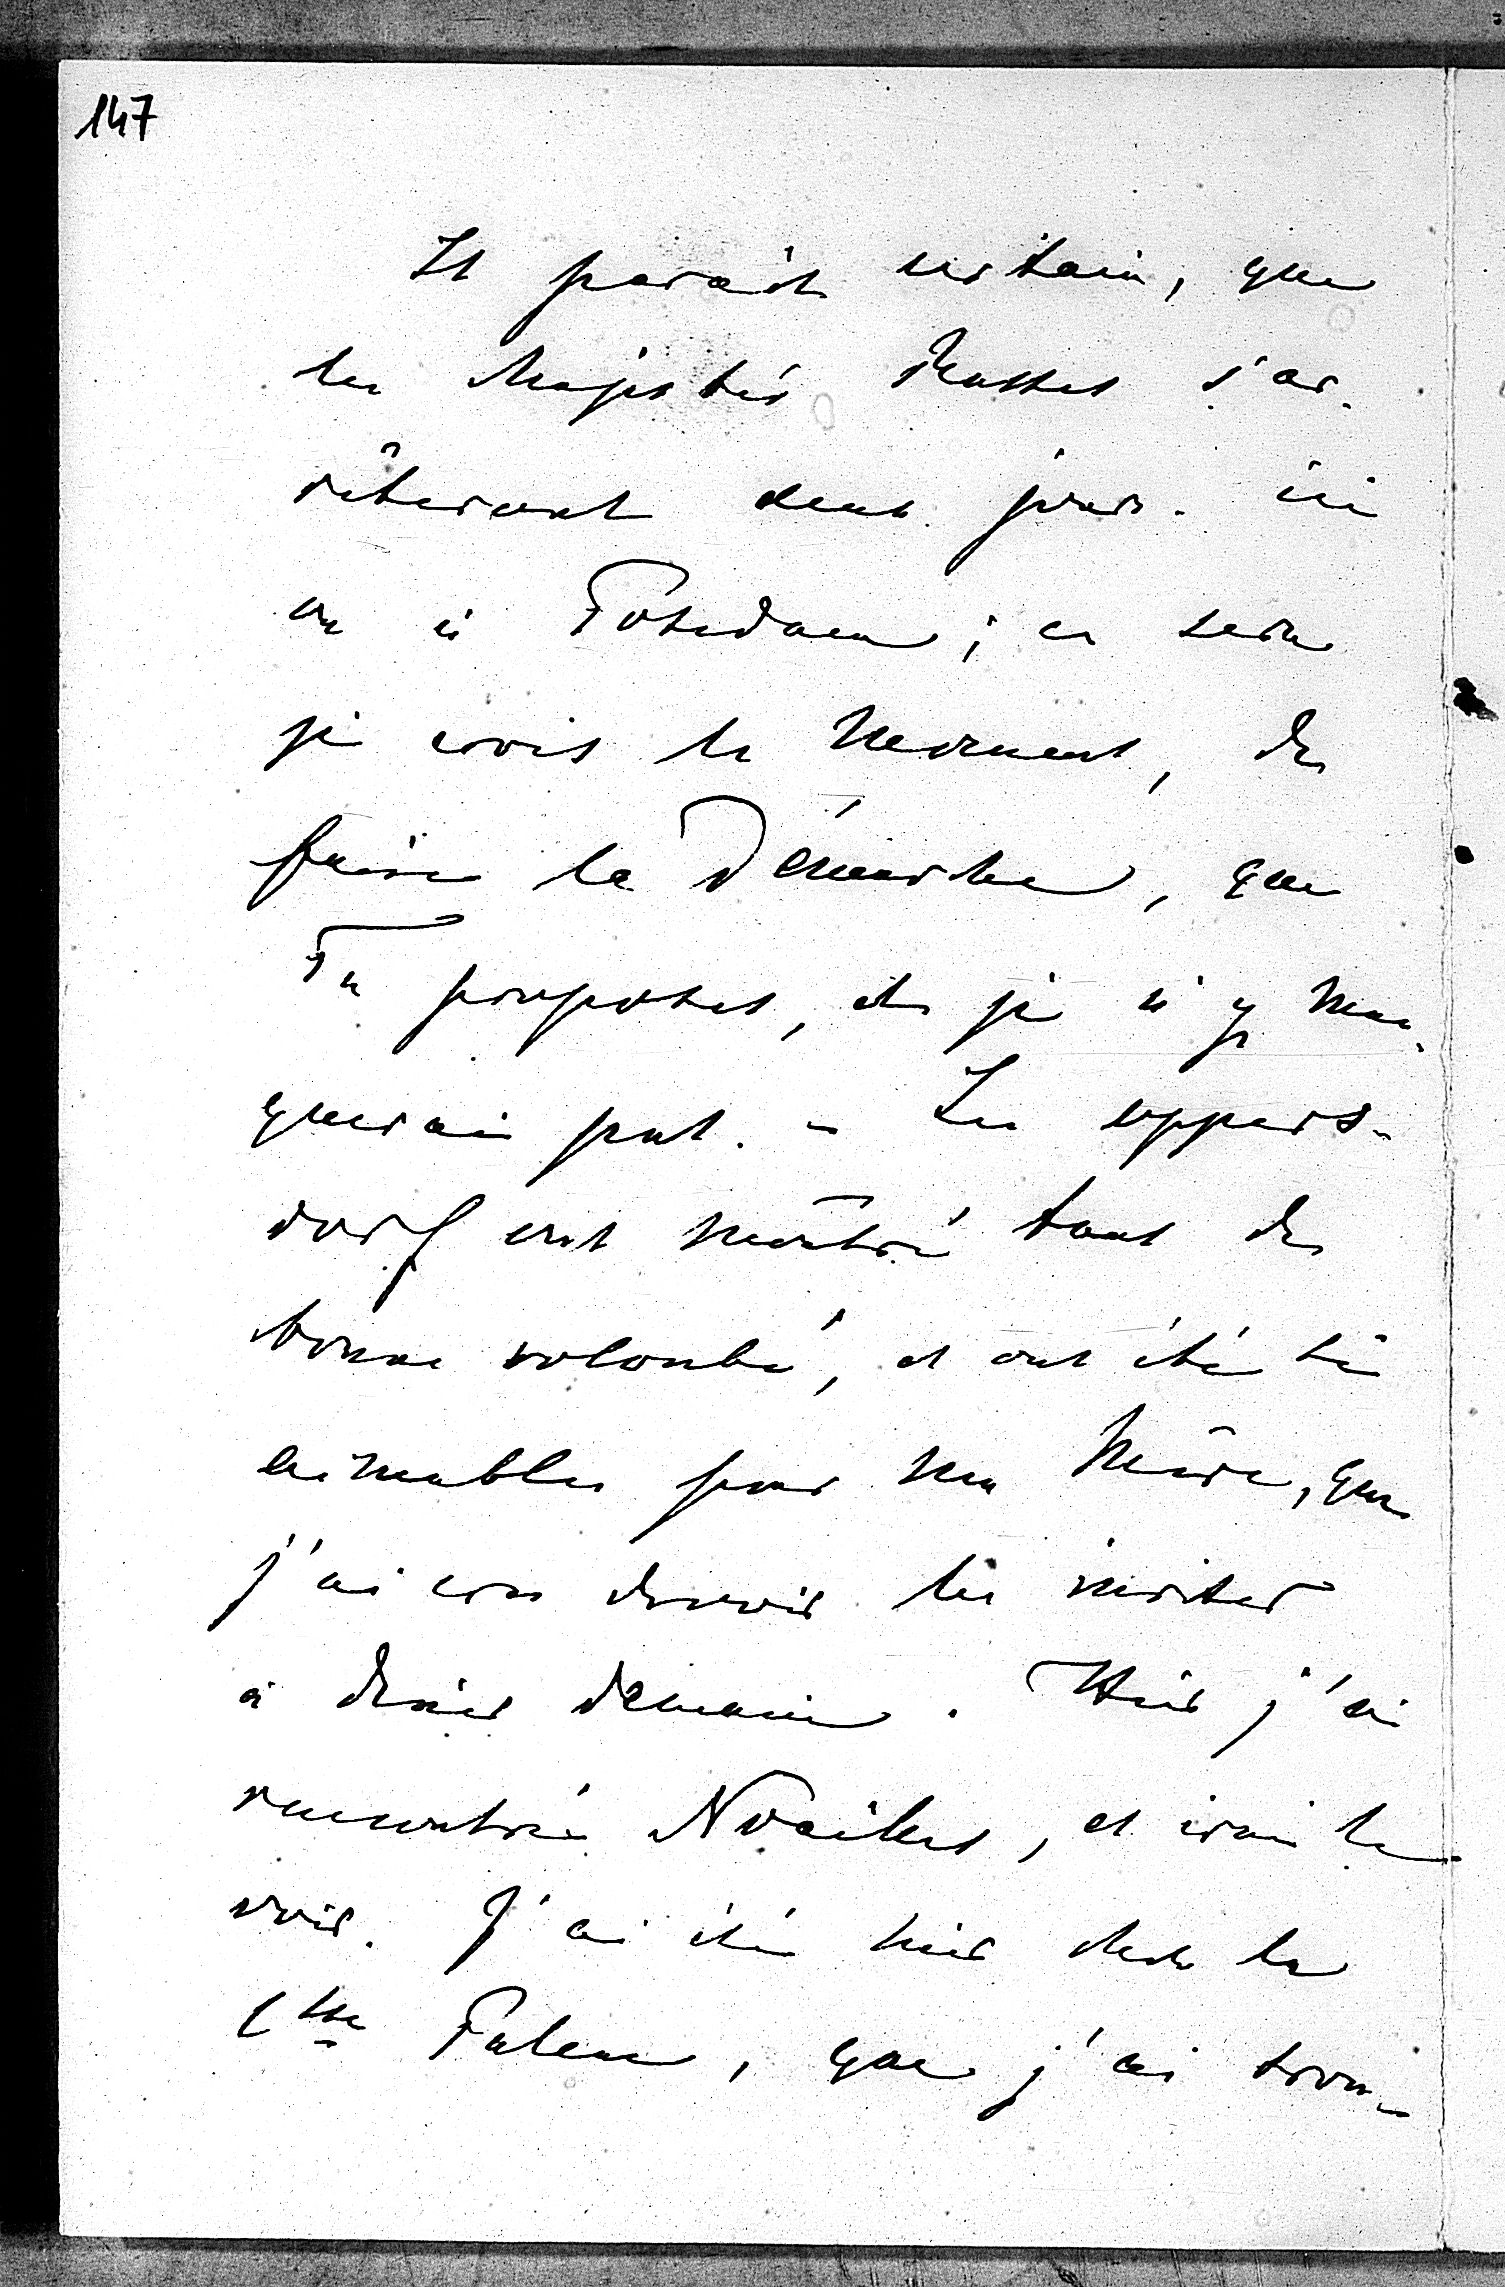 147
Il paraît certain, que
les Majestés Russes s'ar-
rêteront deux jours ici
ou à Potsdam; ce sera
je crois le Moment, de
faire la Démarche, que
Tu proposes, et je n'y man-
querai pas. - Les Oppers-
dorf ont montré tant de
bonne volonté, et ont été si
aimables pour ma Mère, que
j'ai cru devoir les inviter
à dîner demain. Hier j'ai
rencontré Noailles, et irai le
voir. J'ai été hier chez la
Ctsse Pahlen, que j'ai trou-